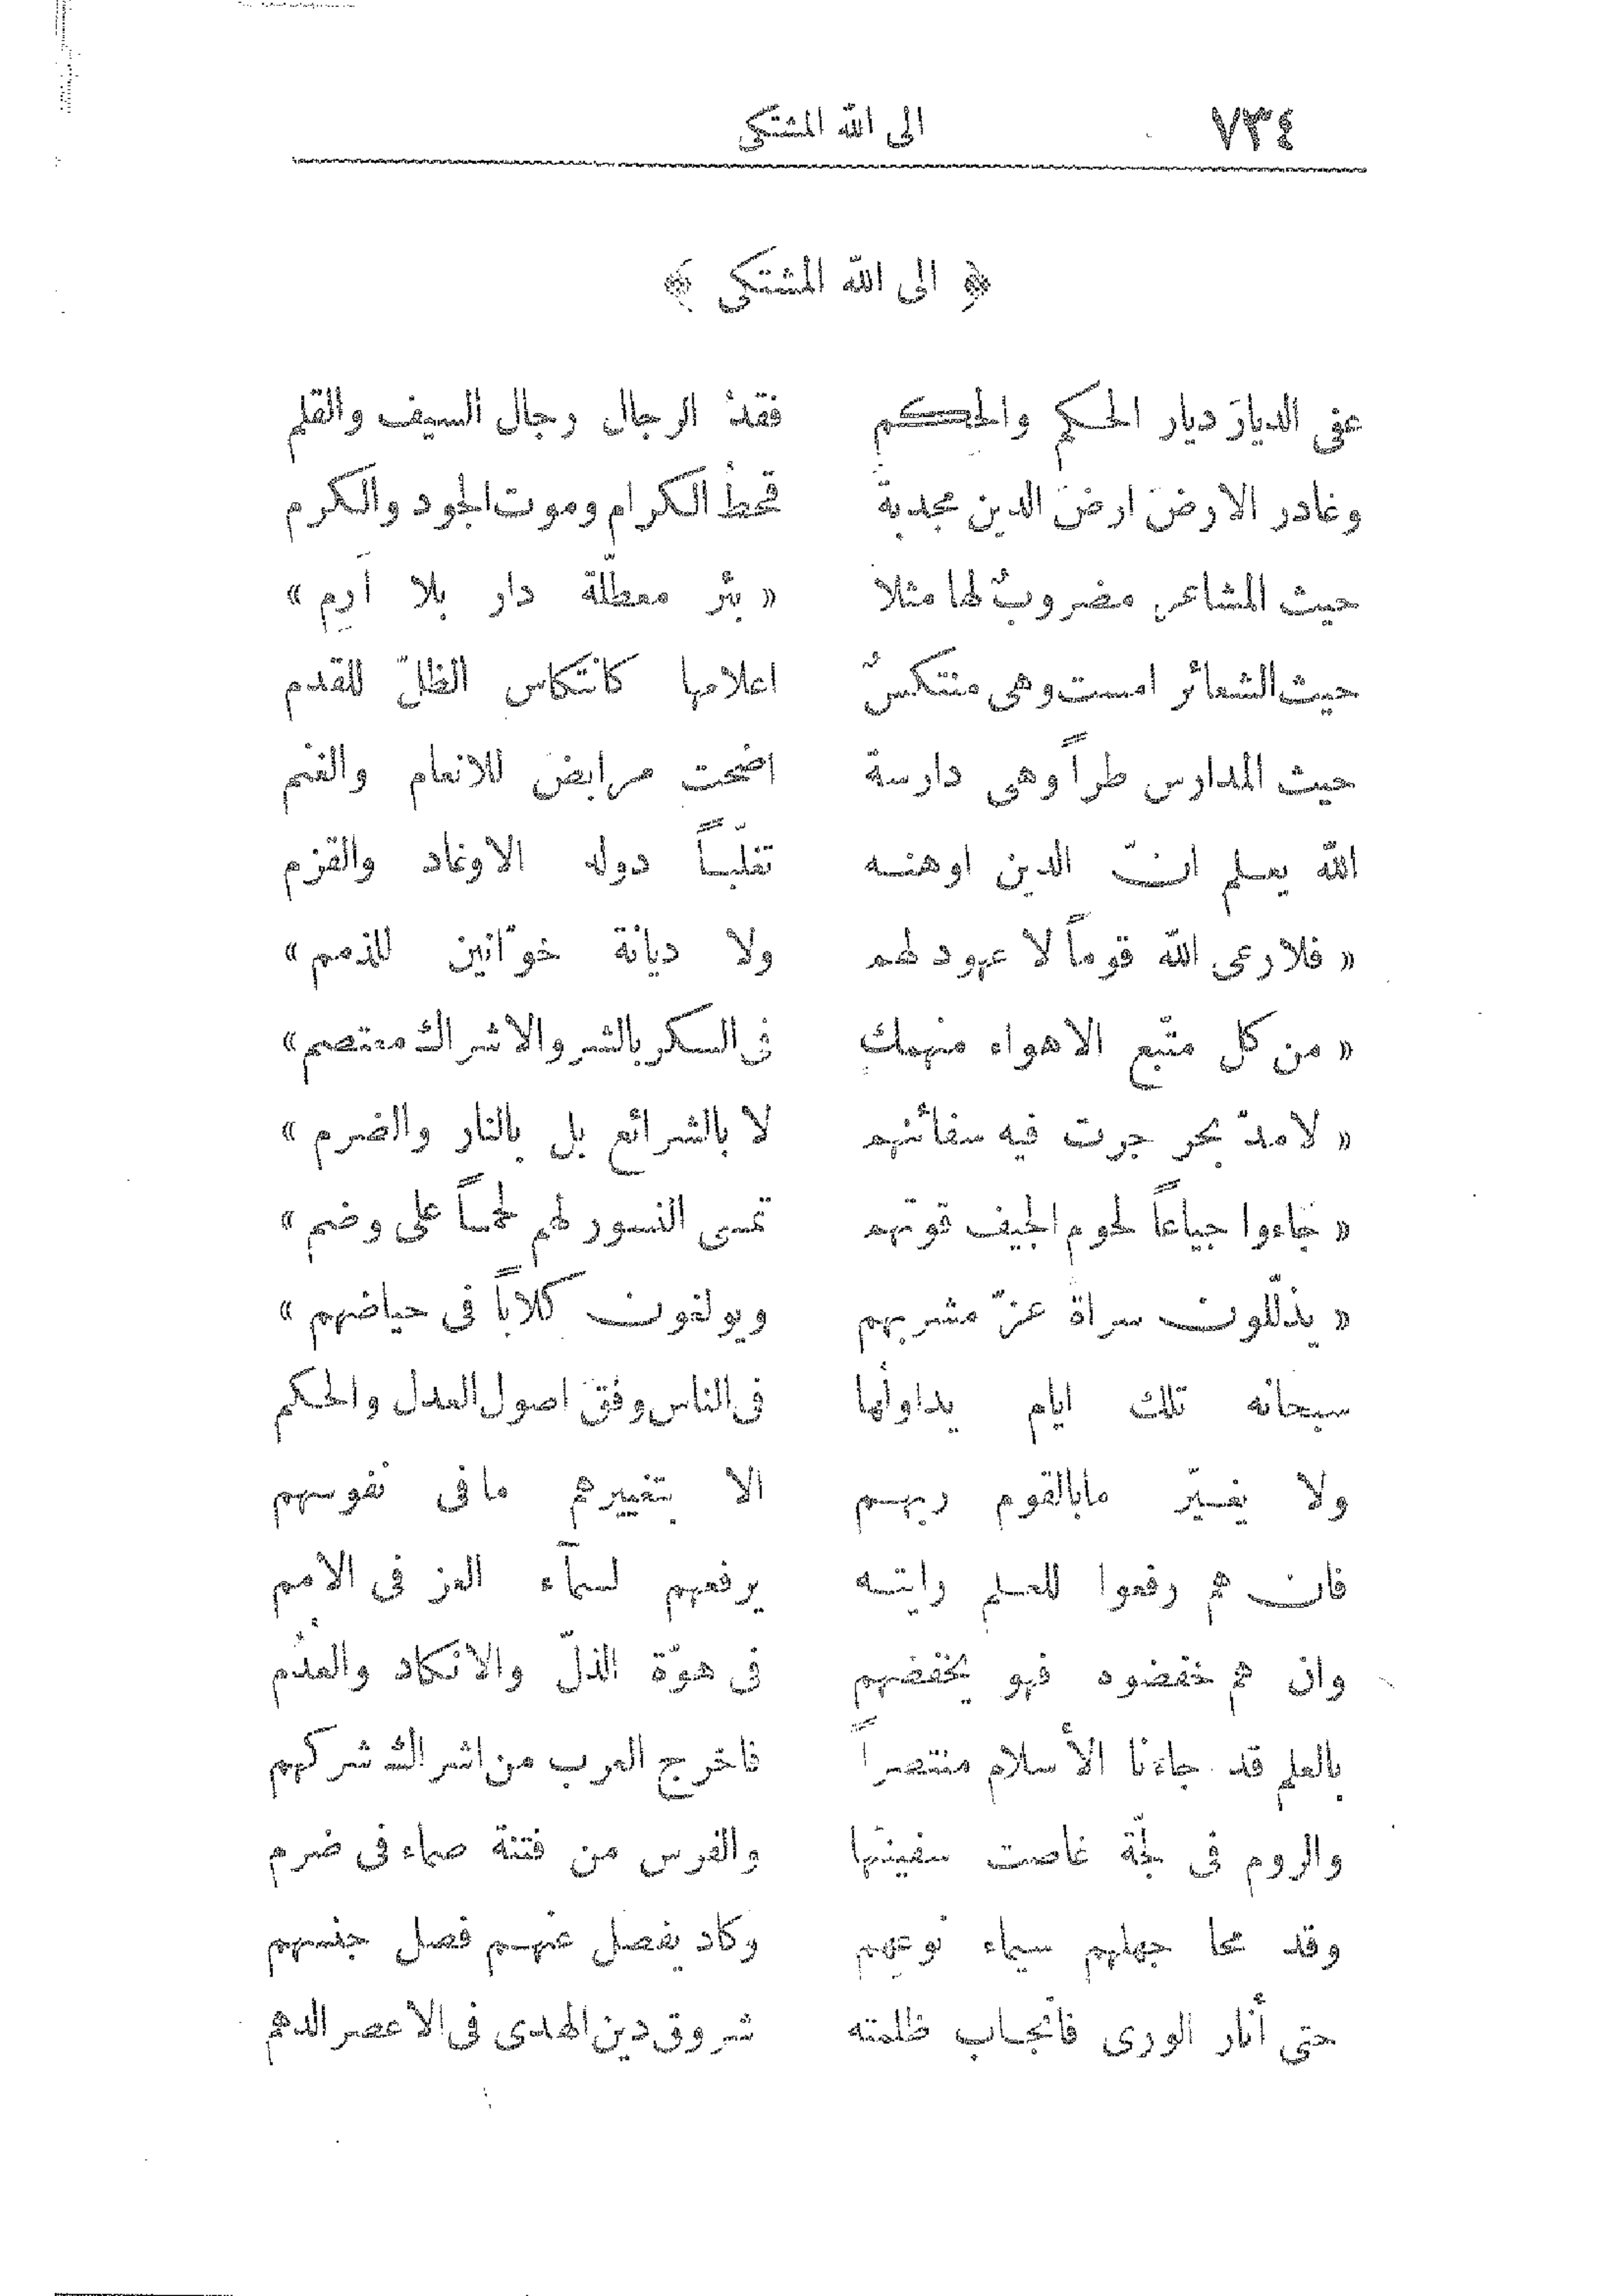 ٧٣٤ الى الله المشتكى
﴿ الى الله المشتكى ﴾
عفى الديارَ ديار الحكم والحكم فقدُ الرجال رجال السيف والقلم
وغادر الارضَ ارضَ الدين مجدبةً قحطُ الكرام وموت الجود والكرم
حيث المشاعر مضروبٌ لها مثلا « بئر معطّلة دار بلا آرِم »
حيث الشعائر امست وهى منتكسٌ اعلامها كانتكاس الظلّ للقدم
حيث المدارس طراً وهى دارسة اضحت مرابض للانعام والغنم
الله يعلم انّ الدين اوهنه تغلّباً دولة الاوغاد والقزم
« فلا رعى الله قوماً لا عهود لهم ولا ديانة خوّانين للذمم »
« من كل متّبع الاهواء منهمك فى السكر بالشر والاشراك معتصم »
« لامدّ بحر جرت فيه سفائنهم لا بالشرائع بل بالنار والضرم »
« جاءوا جياعاً لحوم الجيف قوتهم تمسى النسور لهم لحماً على وضم »
« يذلّلون سراة عزّ مشربهم ويولغون كلاباً فى حياضهم »
سبحانه تلك ايام يداولها فى الناس وفق اصول العدل والحكم
ولا يغيّر مابالقوم ربهم الا بتغييرهم مافى نفوسهم
فان هم رفعوا للعلم رايته يرفعهم لسمآء العز فى الامم
وان هم خفضوه فهو يخفضهم فى هوّة الذلّ والانكاد والعدُم
بالعلم قد جاءنا الأسلام منتصراً فاخرج العرب من اشراك شركهم
والروم فى لجّة غاصت سفينتها والفرس من فتنة صماء فى ضرم
وقد محا جهلهم سيماء نوعهم وكاد يفصل عنهم فصل جنسهم
حتى أنار الورى فانجاب ظلمته شروق دين الهدى فى الاعصر الدهم